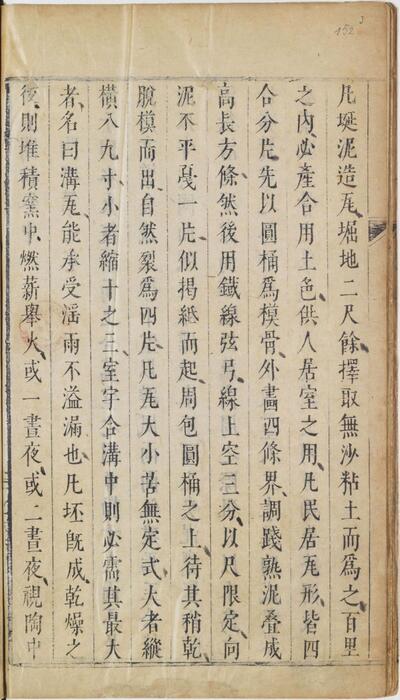 152
3
凡埏泥造瓦、掘地二尺餘、擇取無沙粘土而爲之、百里
之內、必產合用土色、供人居室之用、凡民居瓦形、皆四
合分片、先以圓桶爲模骨、外畫四條界、調踐熟泥、疊成
高長方條、然後用鐵線弦弓、線上空三分、以尺限定、向
泥不平戞一片、似揭紙而起、周包圓桶之上、待其稍乾、
脫模而出、自然裂爲四片、凡瓦大小苦無定式、大者縱
橫八九寸、小者縮十之三、室宇合溝中、則必需其最大
者、名曰溝瓦、能承受滛雨不溢漏也、凡坯旣成、乾燥之
後、則堆積窯中、燃薪舉火、或一晝夜、或二晝夜、視陶中